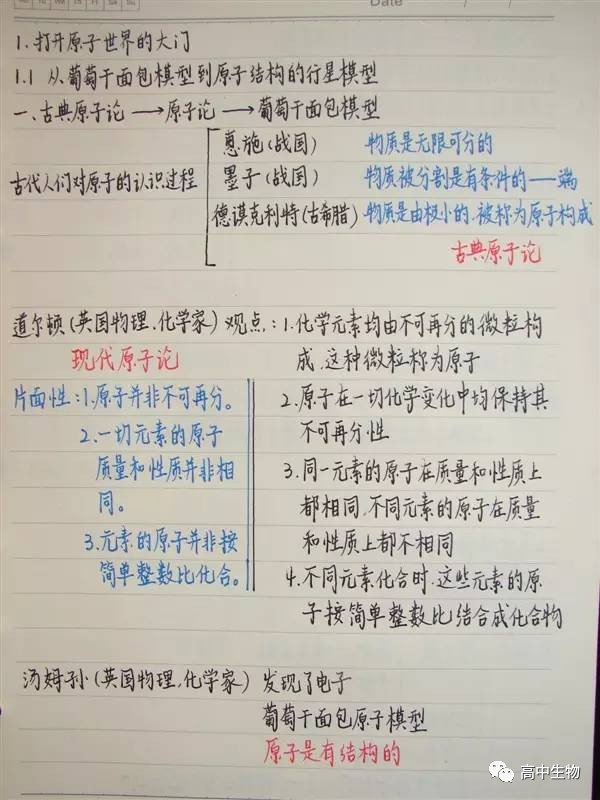 Date / /
1.打开原子世界的大门
1.1 从葡萄干面包模型到原子结构的行星模型
一、古典原子论→原子论→葡萄干面包模型
古代人们对原子的认识过程
惠施(战国) 物质是无限可分的
墨子(战国) 物质被分割是有条件的——端
德谟克利特(古希腊) 物质是由极小的.被称为原子构成
古典原子论
道尔顿(英国物理.化学家)观点:1.化学元素均由不可再分的微粒构
成.这种微粒称为原子
2.原子在一切化学变化中均保持其
不可再分性
3.同一元素的原子在质量和性质上
都相同.不同元素的原子在质量
和性质上都不相同
4.不同元素化合时.这些元素的原
子按简单整数比结合成化合物
现代原子论
片面性:1.原子并非不可再分。
2.一切元素的原子
质量和性质并非相
同。
3.元素的原子并非按
简单整数比化合。
汤姆孙(英国物理.化学家) 发现了电子
葡萄干面包原子模型
原子是有结构的
高中生物